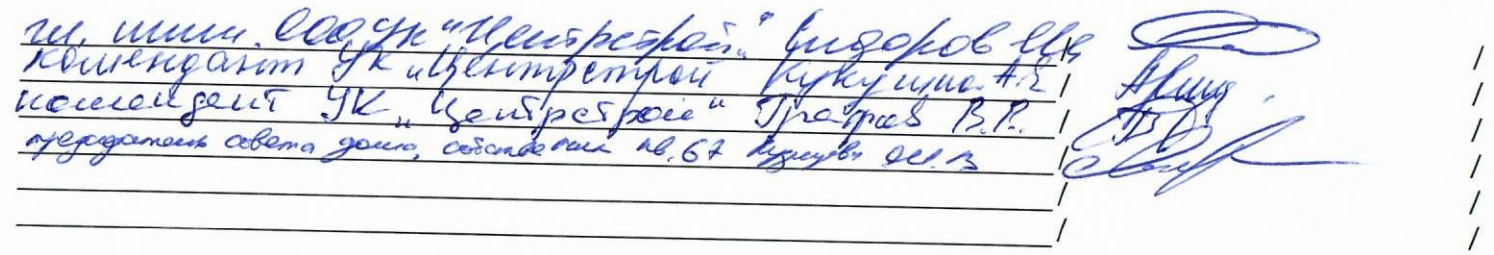 гл. инж. ООО УК "Центрстрой" Сидоров /
комендант УК "Центрстрой" Кукушкина А.Е /
комендант УК "Центрстрой" В.В. /
председатель совета дома, собственник кв. 67 М.В /
/
/